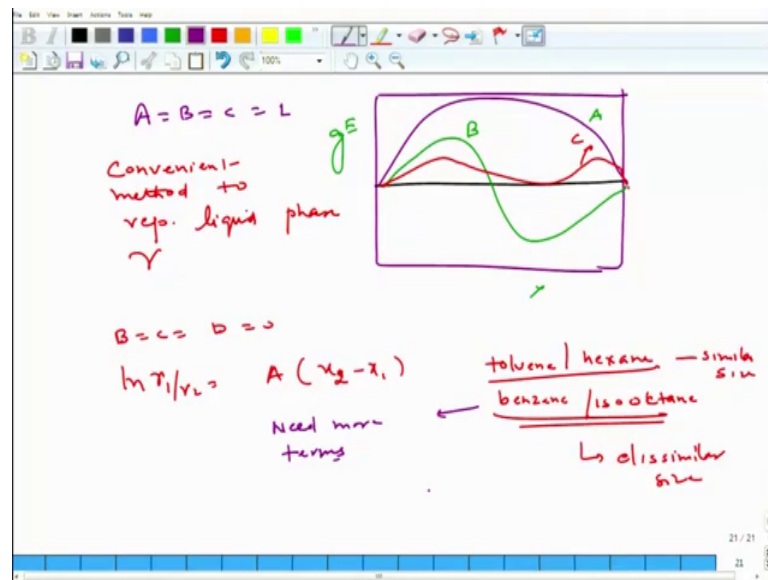 File Edit View Insert Actions Tools Help
B I
100%
A = B = C = 1
g^E
B
A
C
Convenient
method to
rep. liquid phase
γ
x
B = C = D = 0
ln γ1/γ2 = A (x2 - x1)
toluene / hexane — similar
size
benzene / isooktane
Need more
terms
↳ dissimilar
size
21 / 21
21